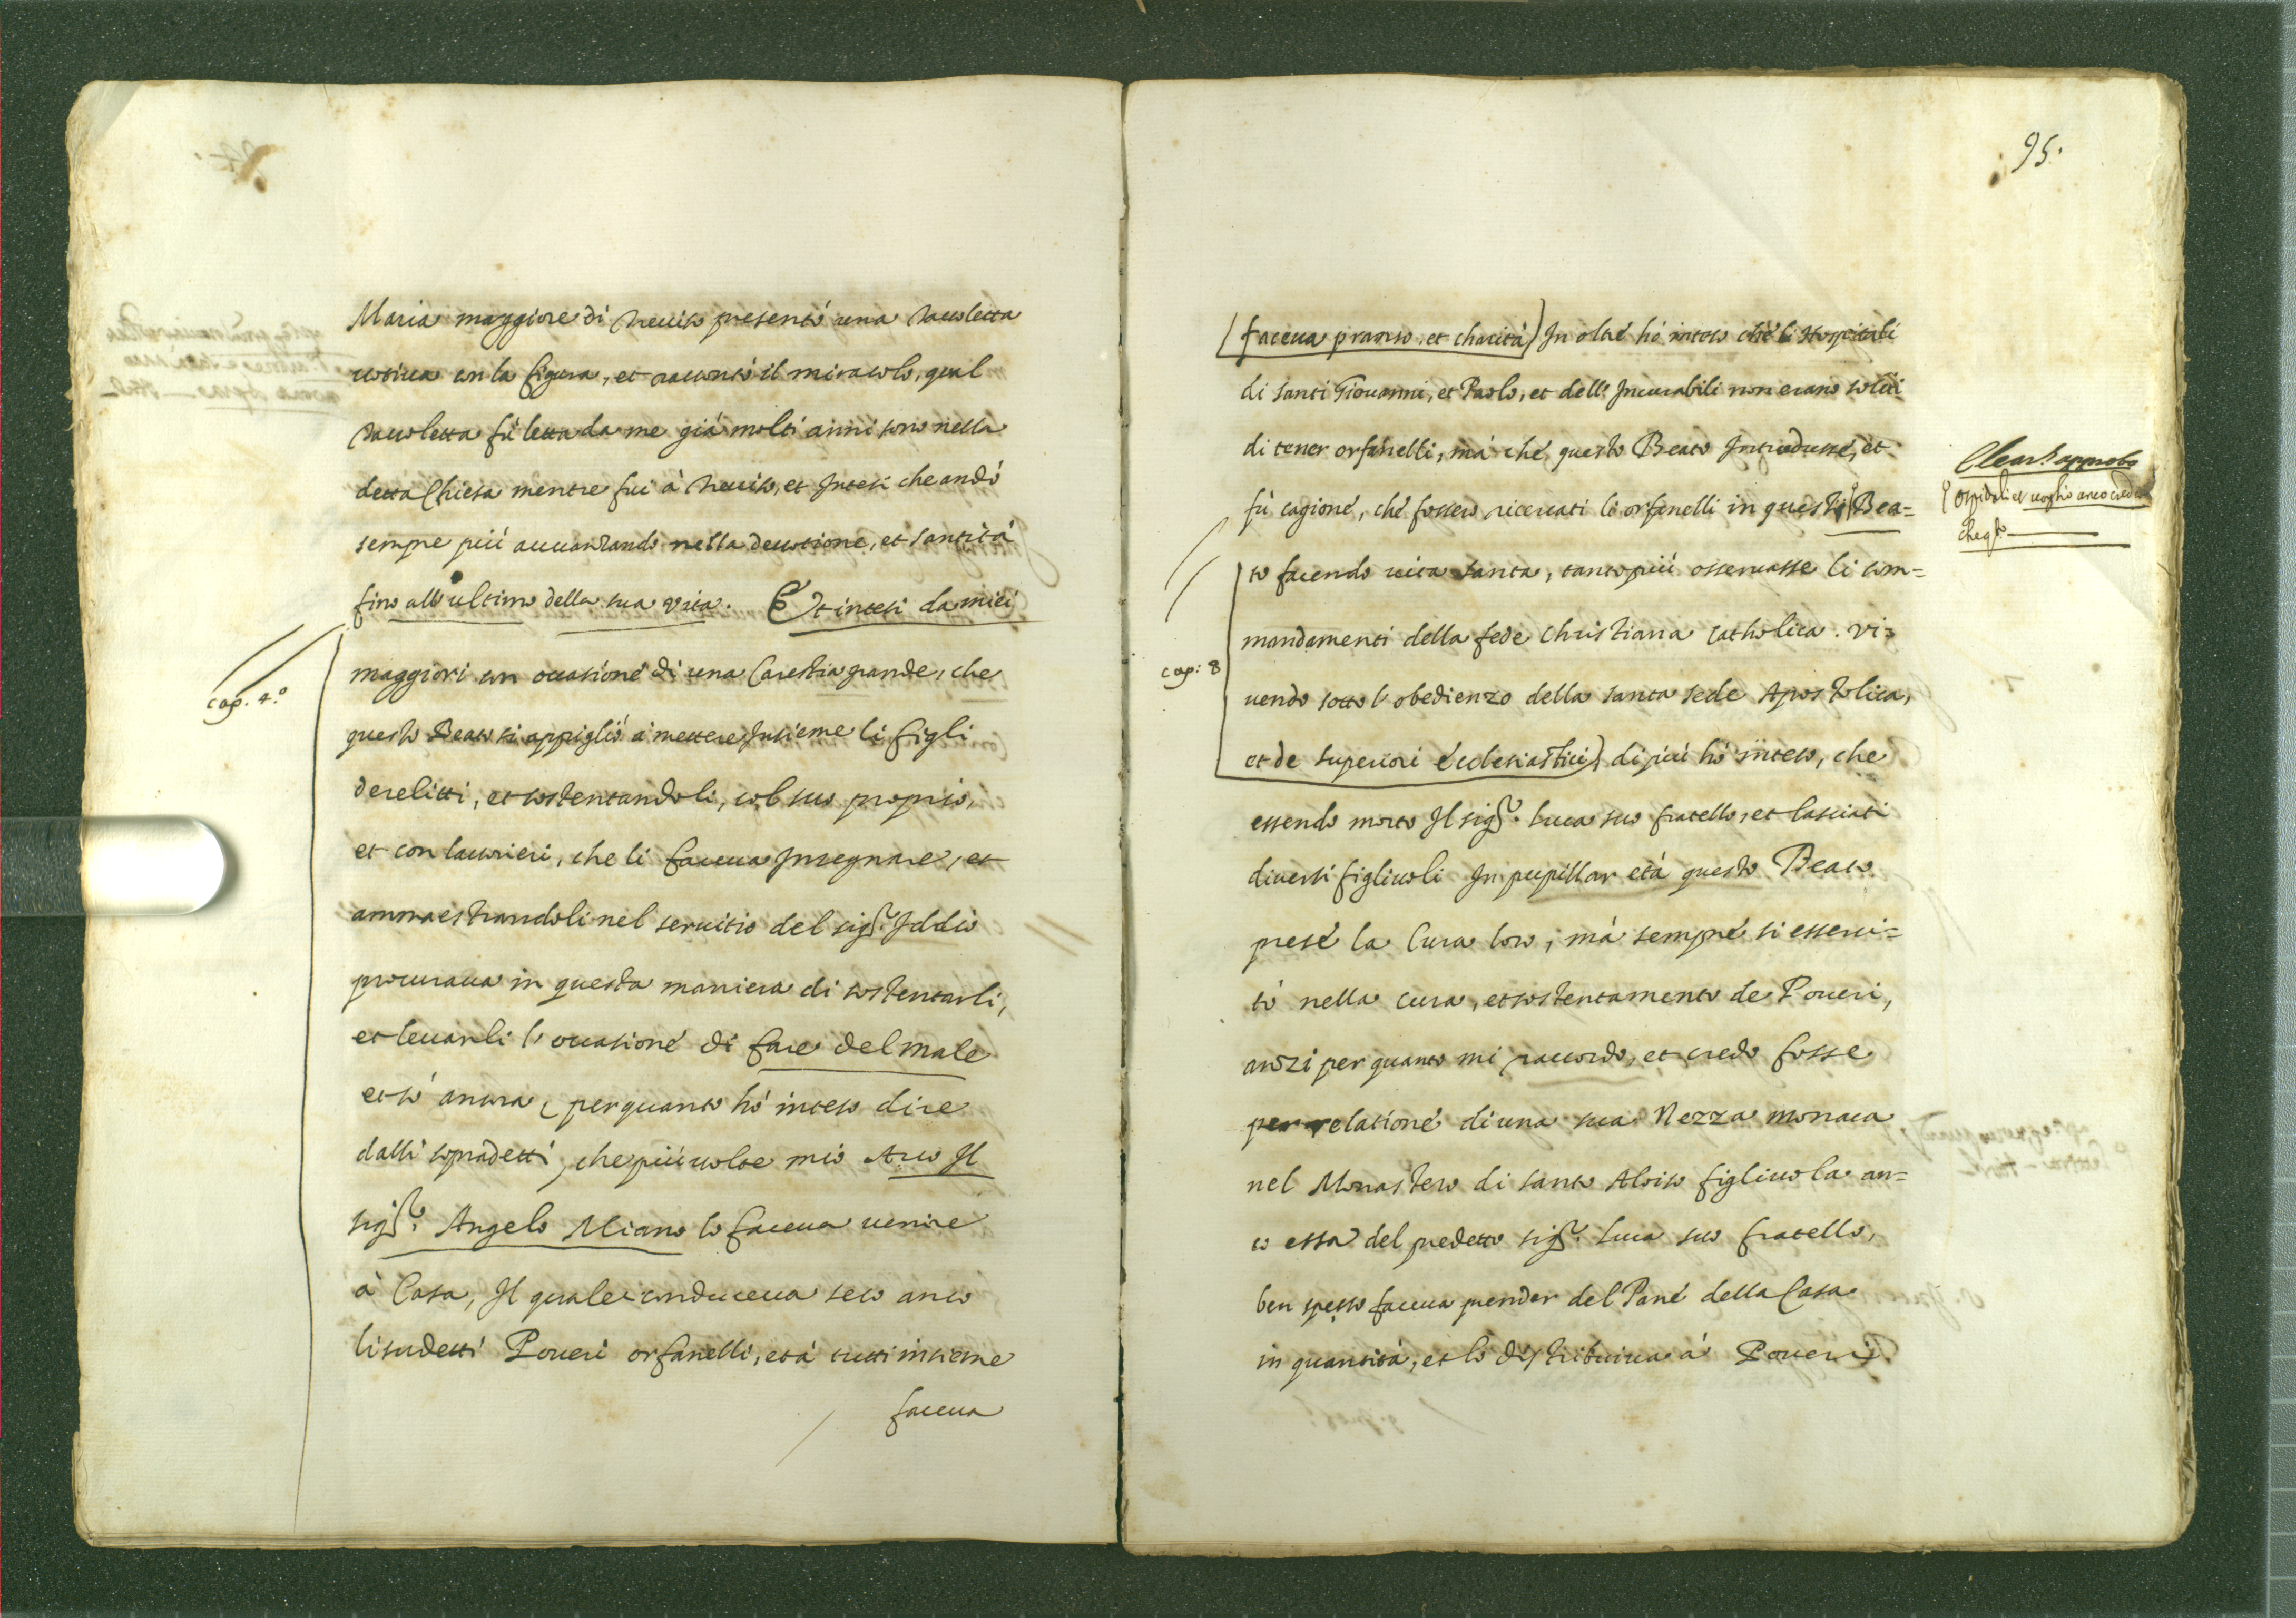 Maria maggiore di Treuiso presentò una tauoletta
uotiua con la figura, et raccontò il miracolo, qual
tauoletta fù letta da me già molti anni sono nella
detta Chiesa mentre fui à Treuiso, et Intesi che andò
sempre più auuanzando nella deuotione, et santità
fino all'ultimo della sua vita. Et intesi da miei
maggiori con occasione di una Carestia grande, che
cap. 4.º
questo Beato si appigliò a mettere Insieme li figli
derelitti, et sostentandoli, col suo proprio,
et con lauorieri, che li faceua Insegnare, et
ammaestrandoli nel seruitio del sigr. Iddio
procuraua in questa maniera di sostentarli,
et leuarli l'occasione di fare del male
et sò ancora, per quanto hò inteso dire
dalli sopradetti, che più uolte mio Auo Il
sigr. Angelo Miano lo faceua uenire
à Casa, Il quale conduceua seco anco
li sudetti Poueri orfanelli, et à tutti insieme
faceua
95.
faceua pranso, et charità) In oltre hò inteso che l'Hospitali
di santi Giouanni, et Paolo, et dell'Incurabili non erano soliti
di tener orfanelli, mà che questo Beato Introdusse, et
fù cagione, che fossero riceuati li orfanelli in questi Bea=
ospidali et uoglio anco creder
che qto
to facendo uita santa, tanto più osseruasse li com=
mandamenti della fede Christiana Catholica. vi=
cap: 8
uendo sotto l'obedienzo della santa sede Apostolica,
et de superiori Ecclesiastici) di più hò inteso, che
essendo morto Il sigr. Luca suo fratello, et lasciati
diuersi figliuoli In pupillar età questo Beato
prese la Cura loro, mà sempre si esserci=
tò nella cura, et sostentamento de Poueri,
anzi per quanto mi raccordo, et credo fosse
per relatione di una sua Nezza monaca
nel Monastero di santo Aloiso figliuola an=
co essa del predetto sigr. Luca suo fratello,
ben spesso faceua prender del Pane della Casa
in quantità, et lo distribuiua à Poueri).